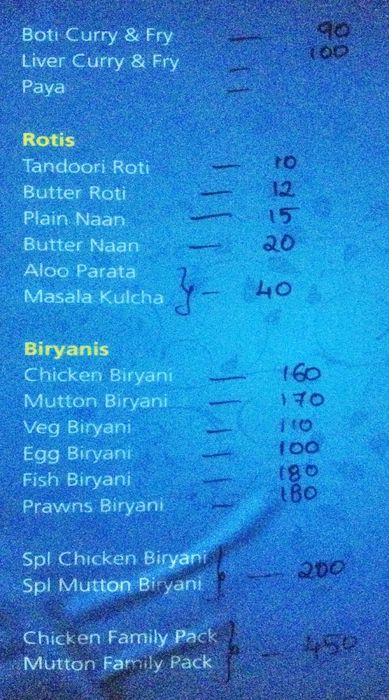 Boti Curry & Fry — 90
Liver Curry & Fry — 100
Paya —
Rotis
Tandoori Roti — 10
Butter Roti — 12
Plain Naan — 15
Butter Naan — 20
Aloo Parata
Masala Kulcha } — 40
Biryanis
Chicken Biryani — 160
Mutton Biryani — 170
Veg Biryani — 110
Egg Biryani — 100
Fish Biryani — 180
Prawns Biryani — 180
Spl Chicken Biryani
Spl Mutton Biryani } — 200
Chicken Family Pack
Mutton Family Pack } — 450